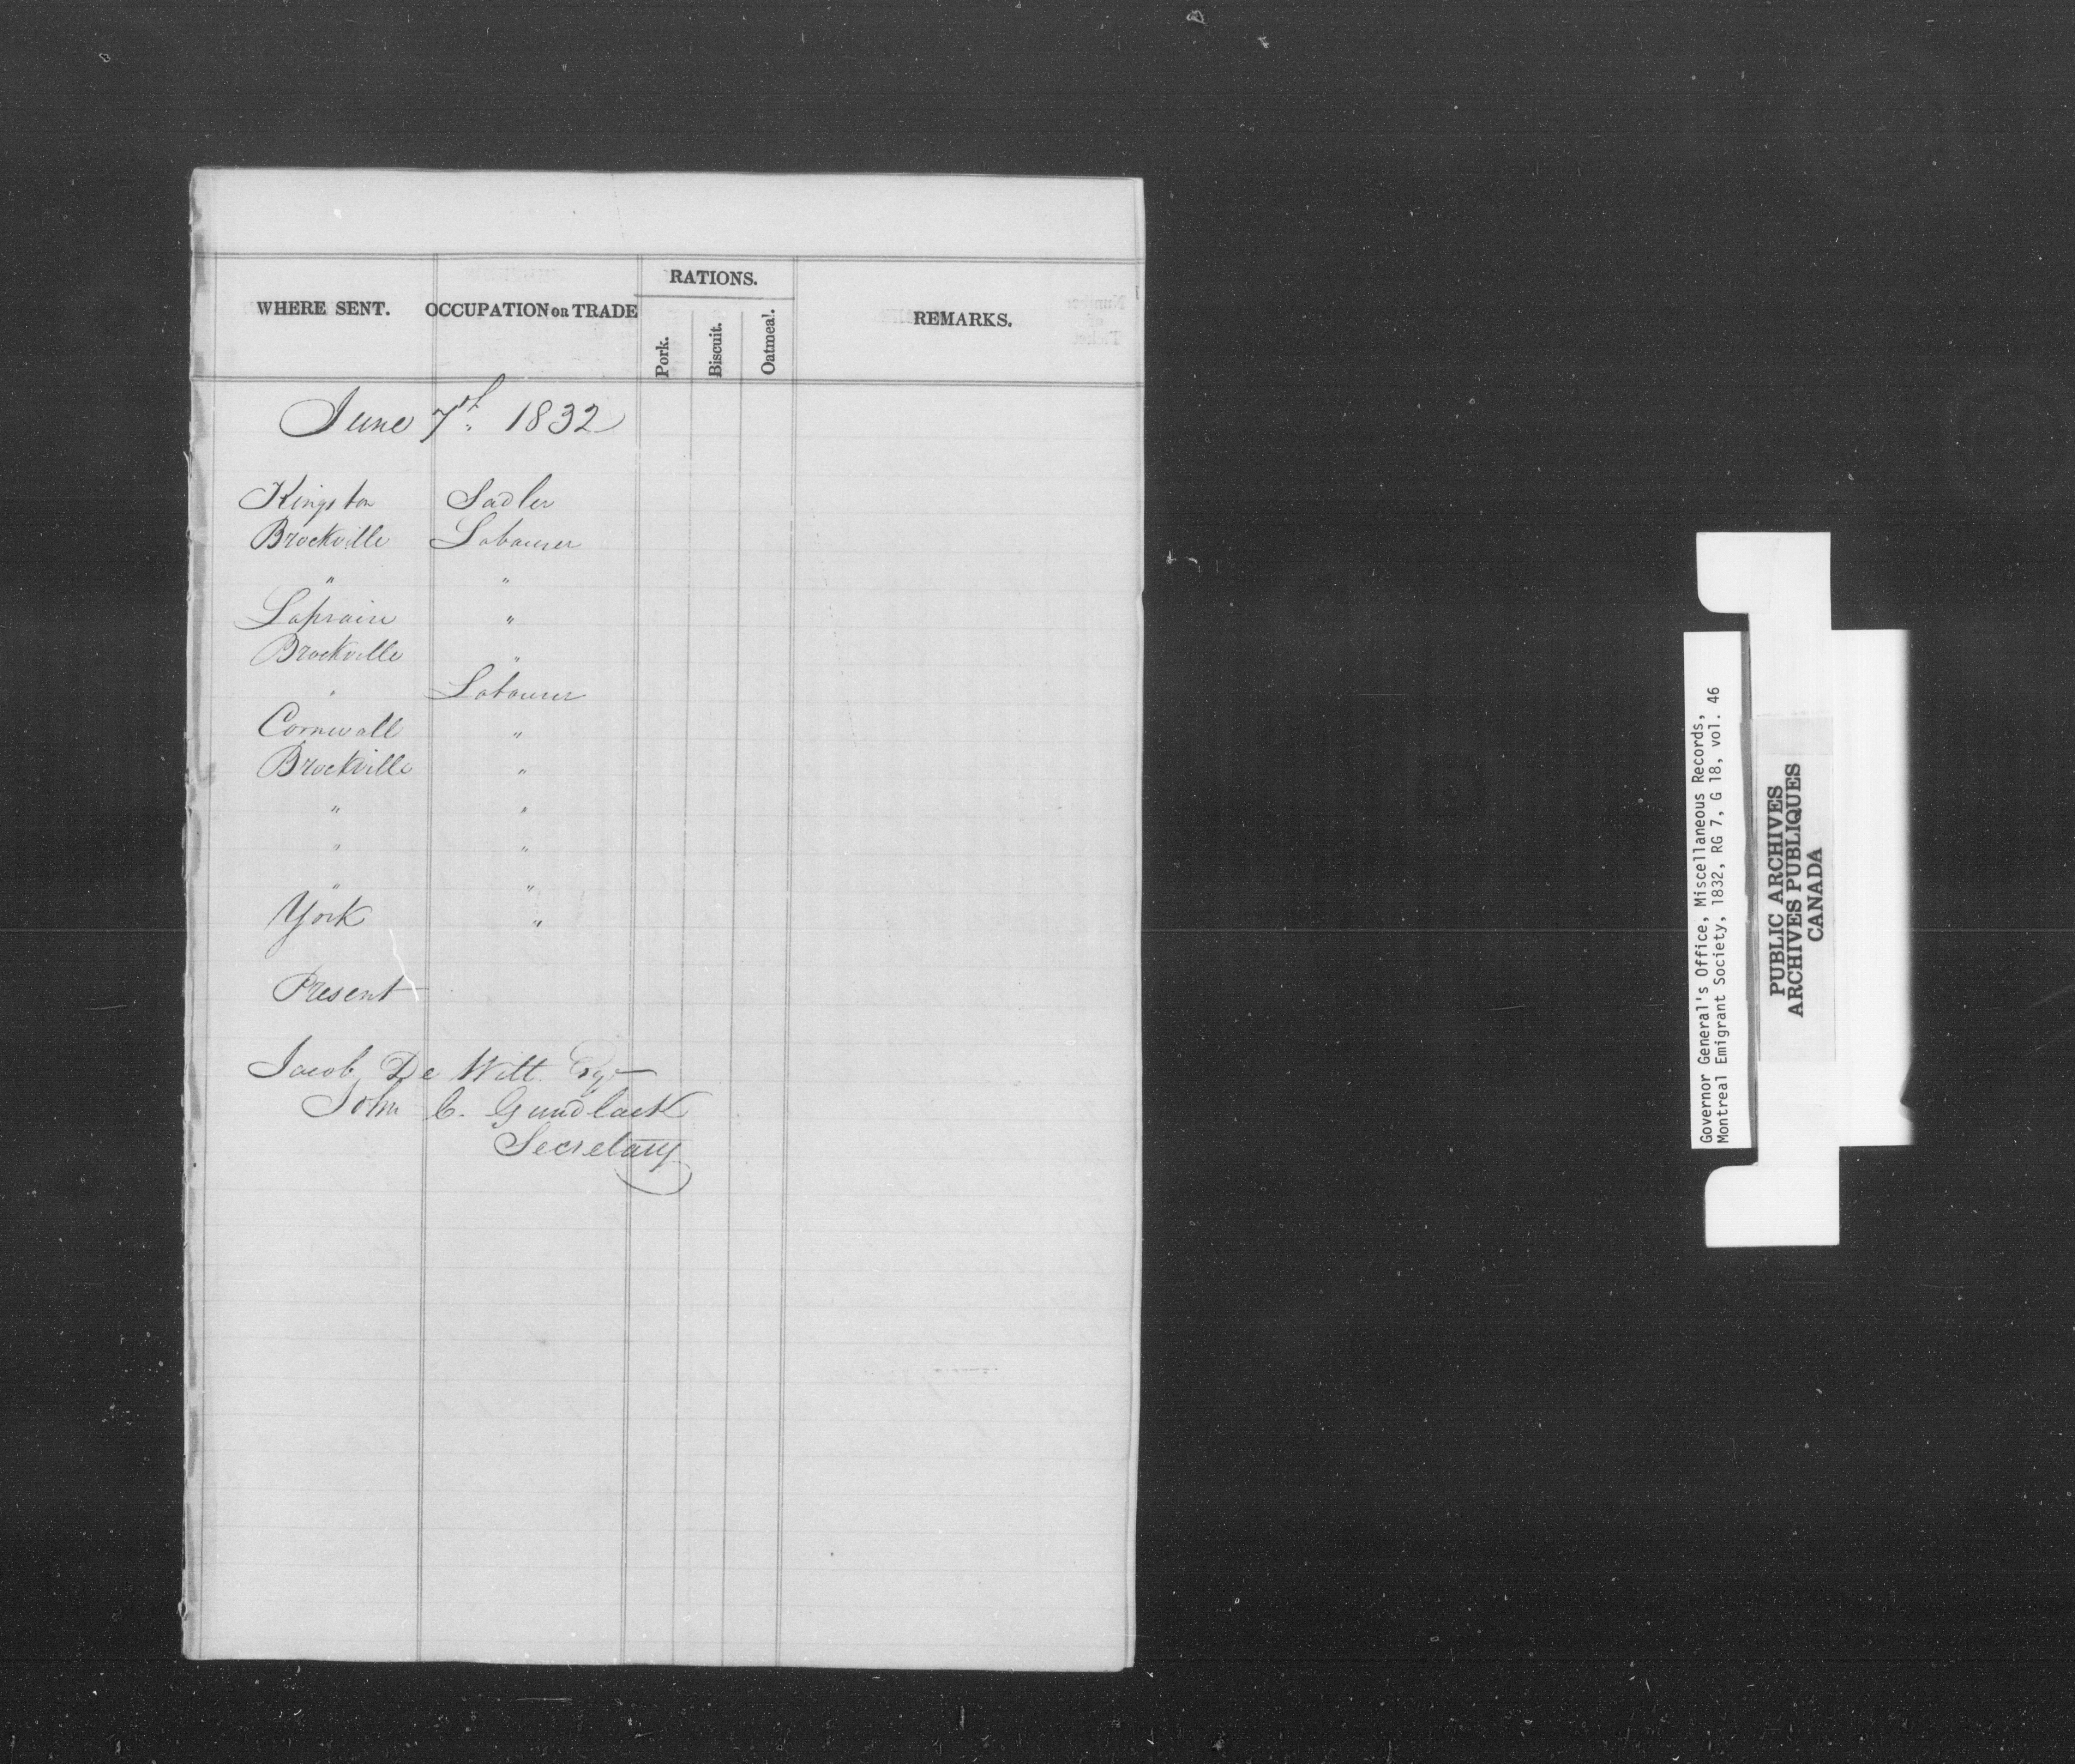 WHERE SENT. OCCUPATION OR TRADE RATIONS. REMARKS.
Pork. Biscuit. Oatmeal.
June 7th 1832
Kingston Sadler
Brockville Labourer
" "
Laprairie "
Brockville "
" Labourer
Cornwall "
Brockville "
" "
" "
" "
York "
Present
Jacob De Witt Esqr
John C. Gundlack
Secretary
Governor General's Office, Miscellaneous Records,
Montreal Emigrant Society, 1832, RG 7, G 18, vol. 46
PUBLIC ARCHIVES
ARCHIVES PUBLIQUES
CANADA